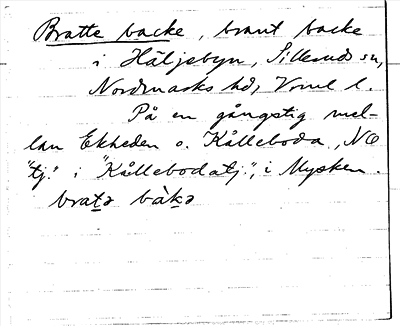 Bratte backe, brant backe
i Häljebyn, Sillerud sn,
Nordmarks hd, Vrml l.
På en gångstig mel-
lan Ekheden o. Kålleboda, NO
"tj." i "Kållebodatj.", i Mysken.
bratə bàkə